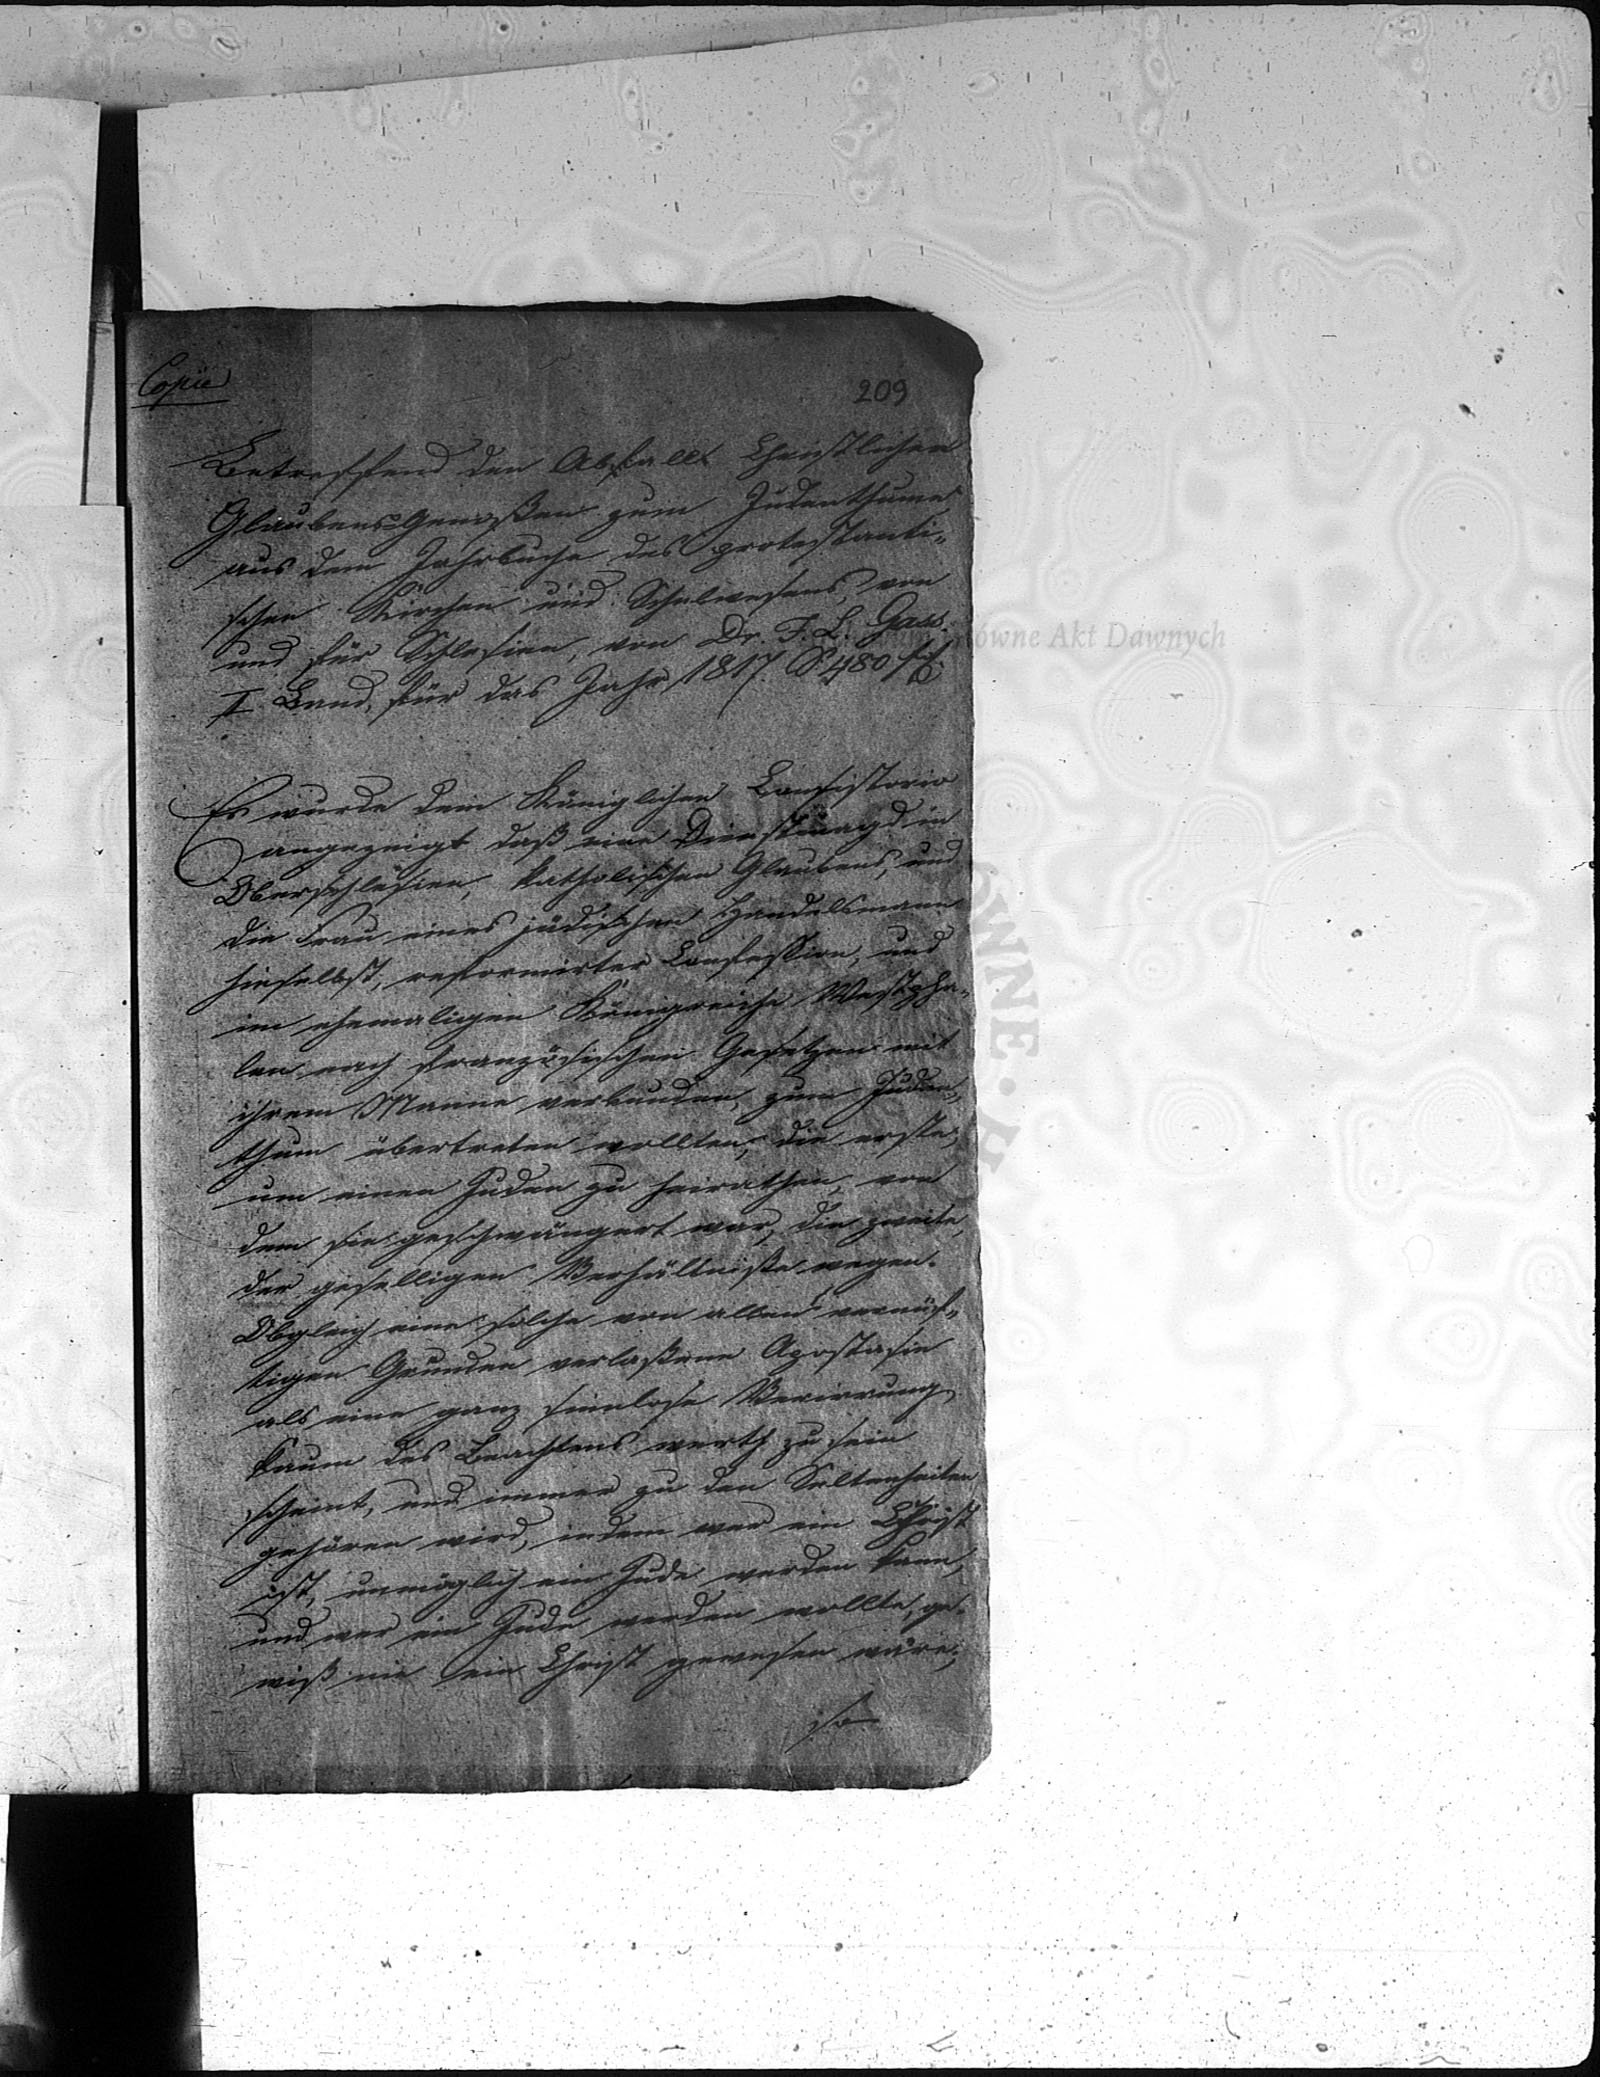 Copie
209
Betreffend den Abfall Christlichen
Glaubens Genoßen zum Judenthume
aus dem Jahrbuche des protestanti„
schen Kirchen und Schulwesens, von
und für Schlesien, von Dr. J. L. Gass.
II Band, für das Jahr 1817. S. 480 ff.
Es wurde dem Königlichen Consistorio
angezeigt daß eine Dienstmagd in
Oberschlesien, katholischen Glaubens, und
die Frau eines jüdischen Handelsmann
hieselbst, reformirter Confession, und
im ehemaligen Königreiche Westpha„
len nach französischen Gesetzen mit
ihrem Manne verbunden, zum Juden„
thum übertreten wollten; die erste,
um einen Juden zu heirathen, von
dem sie geschwängert war, die zweite,
der geselligen Verhältniße wegen.
Obgleich eine solche von allen vernünf„
tigen Gründen verlaßene Apostasie
als eine ganz sinnlose Verirrung
kaum des Beachtens werth zu sein
scheint, und immer zu den Seltenheiten
gehören wird, indem wer ein Christ
ist, unmöglich ein Jude werden kann,
und wer ein Jude werden wollte, ge„
wiß nie ein Christ gewesen wäre;
so
Główne Akt Dawnych